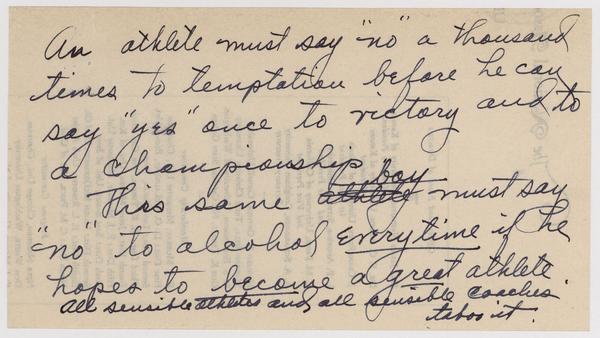 An athlete must say "no" a thousand
times to temptation before he can
say "yes" once to victory and to
a championship
This same athlete boy must say
"no" to alcohol everytime if he
hopes to become a great athlete.
All sensible athletes and all sensible coaches
taboo it.